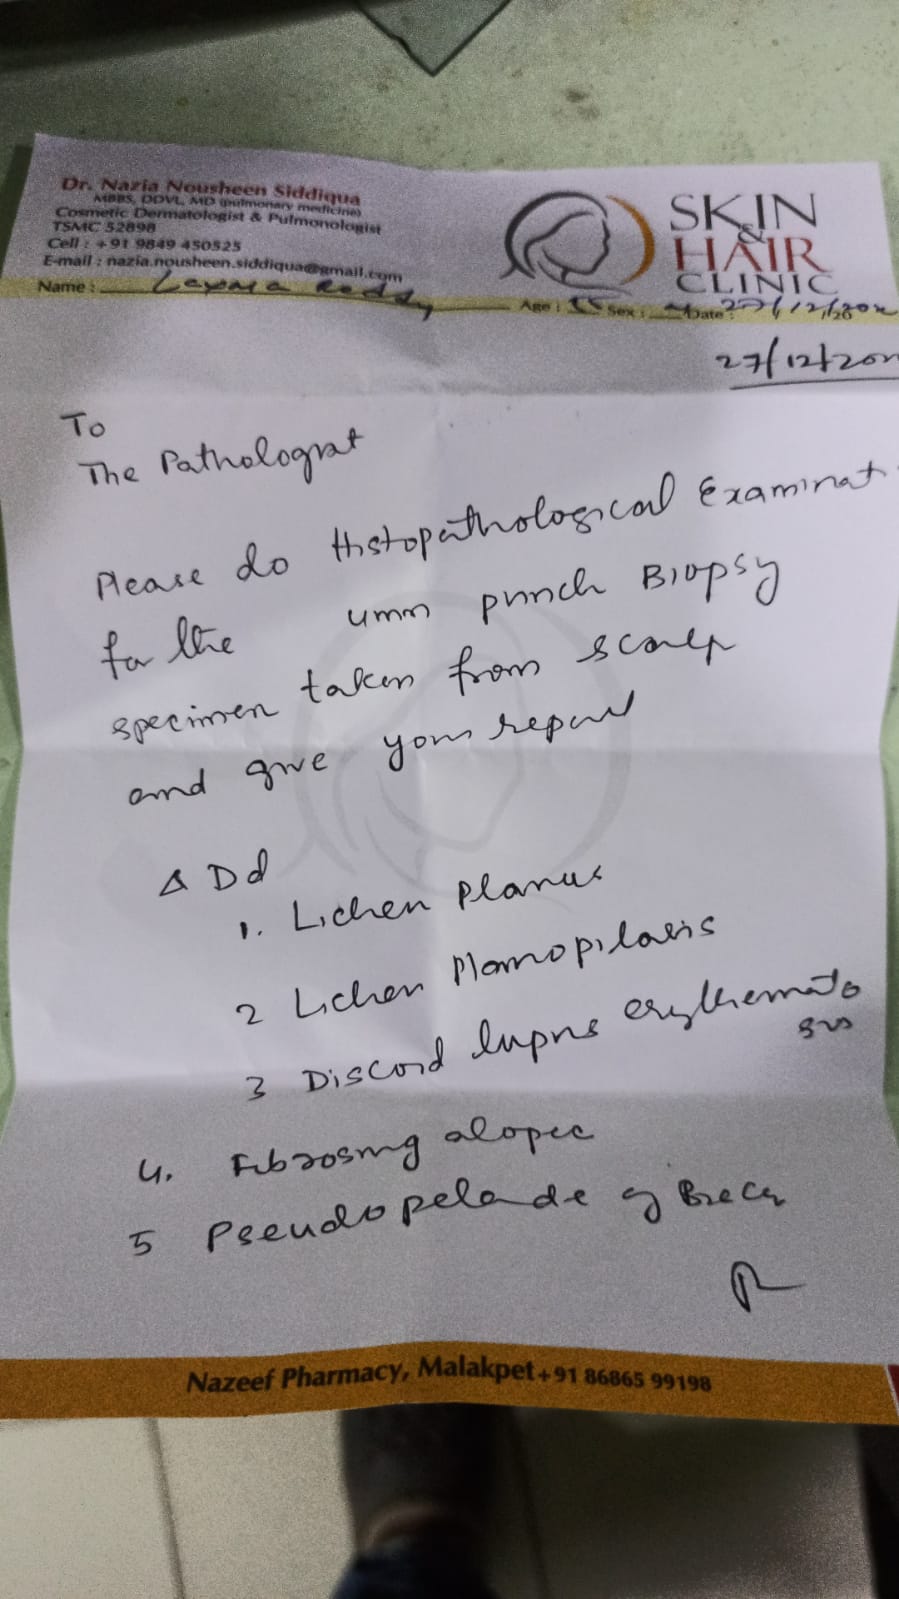 Dr. Nazia Nousheen Siddiqua
MBBS, DDVL, MD (pulmonary medicine)
Cosmetic Dermatologist & Pulmonologist
TSMC 52898
Cell : +91 9849 450525
E-mail : nazia.nousheen.siddiqua@gmail.com
SKIN
&
HAIR
CLINIC
Name : Reddy Age : Sex : Date : 27/12/20
27/12/20
To
The Pathologist
Please do Histopathological Examinat
for the 4mm punch Biopsy
specimen taken from scalp
and give your report
Δ Dd
1. Lichen planus
2 Lichen Planopilaris
3 Discoid lupus erythemato
sus
4. Fibrosing alopec
5 Pseudopelade of Brocq
Nazeef Pharmacy, Malakpet +91 86865 99198